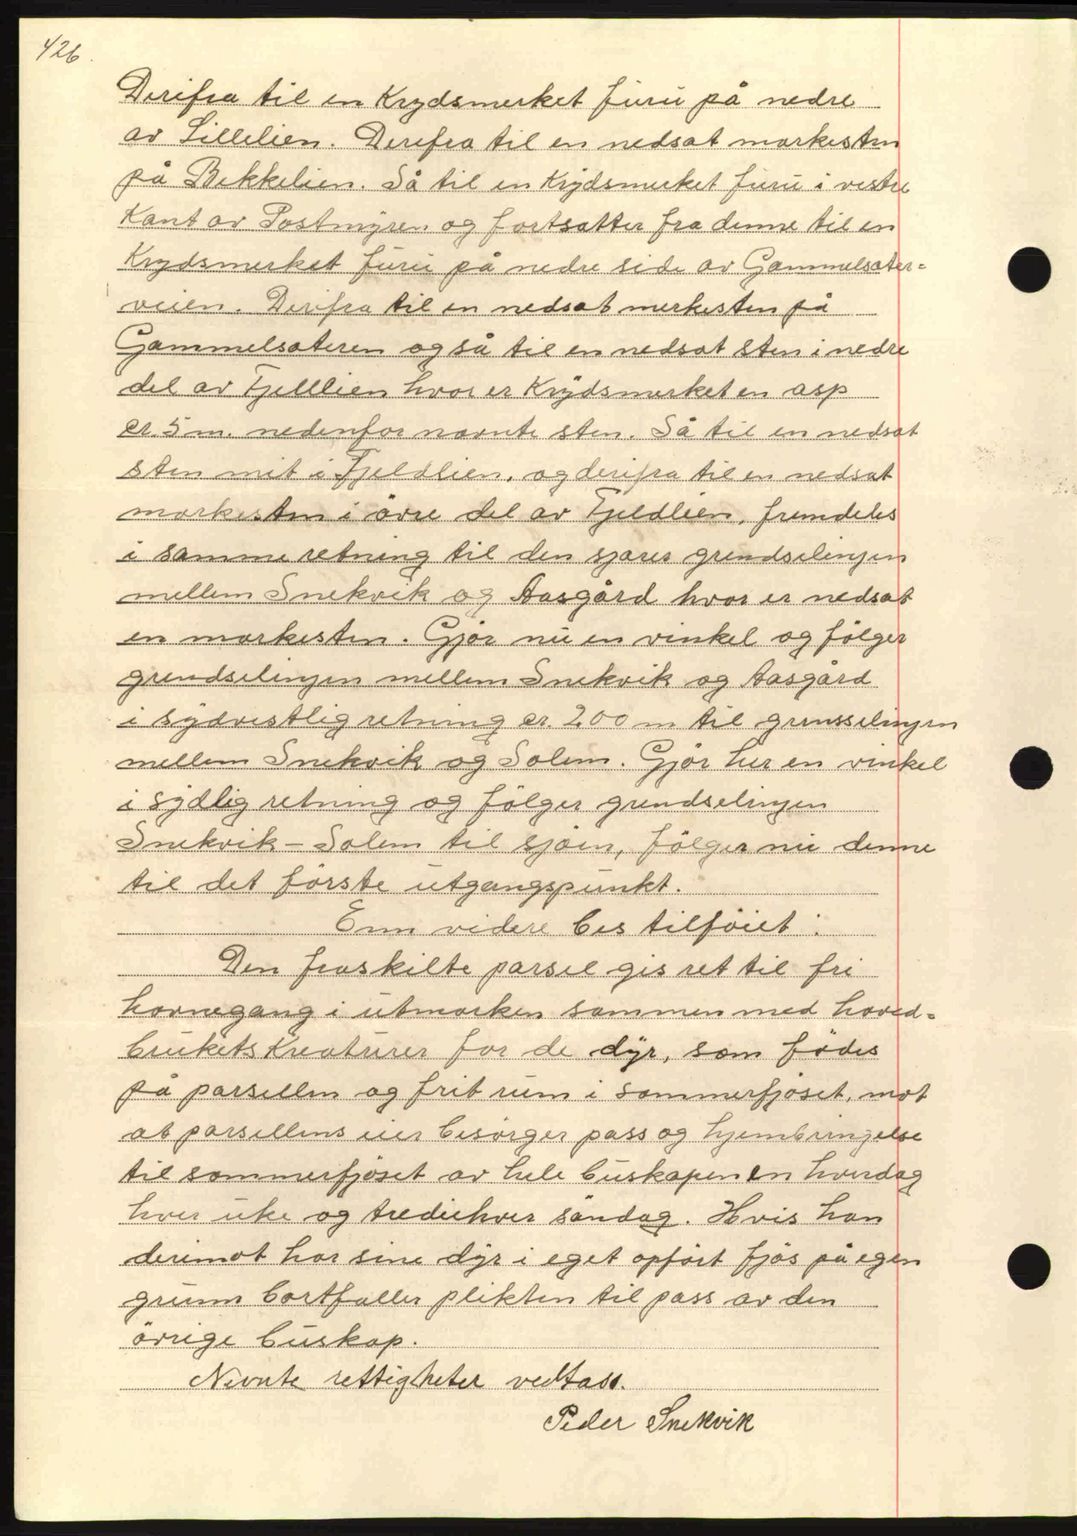 426.
Derifra til en Krydsmerket furu på nedre
av Lillelien. Derefra til en nedsat markesten
på Bekkelien. Så til en Krydsmerket furu i vestre
Kant av Postmyren og fortsatter fra denne til en
Krydsmerket furu på nedre side av Gammelsater=
veien. Derifra til en nedsat merkesten på
Gammelsateren og så til en nedsat sten i nedre
del av Fjelllien hvor er Krydsmerket en asp
cr. 5 m. nedenfor navnte sten. Så til en nedsat
sten mit i Fjeldlien, og derifra til en nedsat
markesten i övre del av Fjeldlien, fremdeles
i samme retning til den sjares grendselinjen
mellem Snekvik og Aasgård hvor er nedsat
en markesten. Gjör nu en vinkel og fölger
grendselinjen mellem Snekvik og Aasgård
i sydvestlig retning cr. 200 m til grensselinjen
mellem Snekvik og Solem. Gjör her en vinkel
i sydlig retning og fölger grendselinjen
Snekvik - Solem til sjöen, fölger nu denne
til det förste utgangspunkt.
Enn videre bes tilföiet:
Den fraskilte parsel gis ret til fri
havnegang i utmarken sammen med hoved=
brukets Kreaturer for de dyr, som födes
på parsellen og frit rum i sommerfjöset, mot
at parsellens eier besörger pass og hjembringelse
til sommerfjöset av hele buskapen en hverdag
hver uke og trediehver söndag. Hvis han
derimot har sine dyr i eget opfört fjös på egen
grunn bortfaller plikten til pass av den
övrige buskap.
Nevnte rettigheter vedtas.
Peder Snekvik